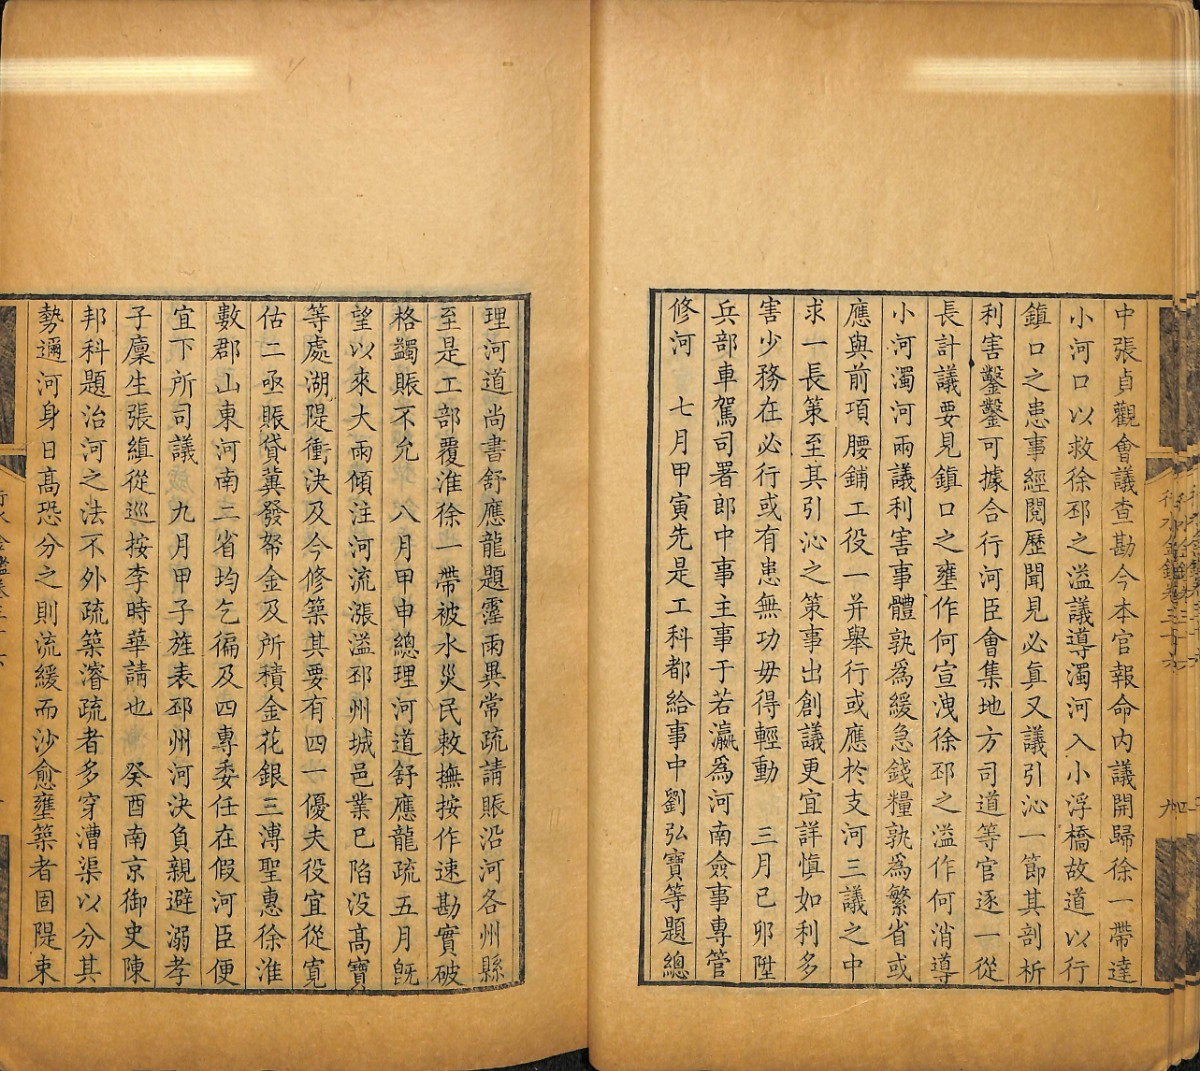 中張貞觀會議查勘今本官報命內議開歸徐一帶達
小河口以救徐邳之溢議導濁河入小浮橋故道以行
鎮口之患事經閱歷聞見必真又議引沁一節其剖析
利害鑿鑿可據合行河臣會集地方司道等官逐一從
長計議要見鎮口之壅作何宣洩徐邳之溢作何消導
小河濁河兩議利害事體孰為緩急錢糧孰為繁省或
應與前項腰鋪工役一并舉行或應於支河三議之中
求一長策至其引沁之策事出創議更宜詳慎如利多
害少務在必行或有患無功毋得輕動 三月己卯陞
兵部車駕司署郎中事主事于若瀛為河南僉事專管
修河 七月甲寅先是工科都給事中劉弘寶等題總
理河道尚書舒應龍題霪雨異常疏請賑沿河各州縣
至是工部覆淮徐一帶被水災民敕撫按作速勘實破
格蠲賑不允 八月甲申總理河道舒應龍疏五月旣
望以來大雨傾注河流漲溢邳州城邑業已陷没高寶
等處湖隄衝決及今修築其要有四一優夫役宜從寬
估二亟賑貸冀發帑金及所積金花銀三溥聖惠徐淮
數郡山東河南二省均乞徧及四專委任在假河臣便
宜下所司議 九月甲子旌表邳州河決負親避溺孝
子廩生張縝從巡按李時華請也 癸酉南京御史陳
邦科題治河之法不外疏築濬疏者多穿漕渠以分其
勢邇河身日高恐分之則流緩而沙愈壅築者固隄束